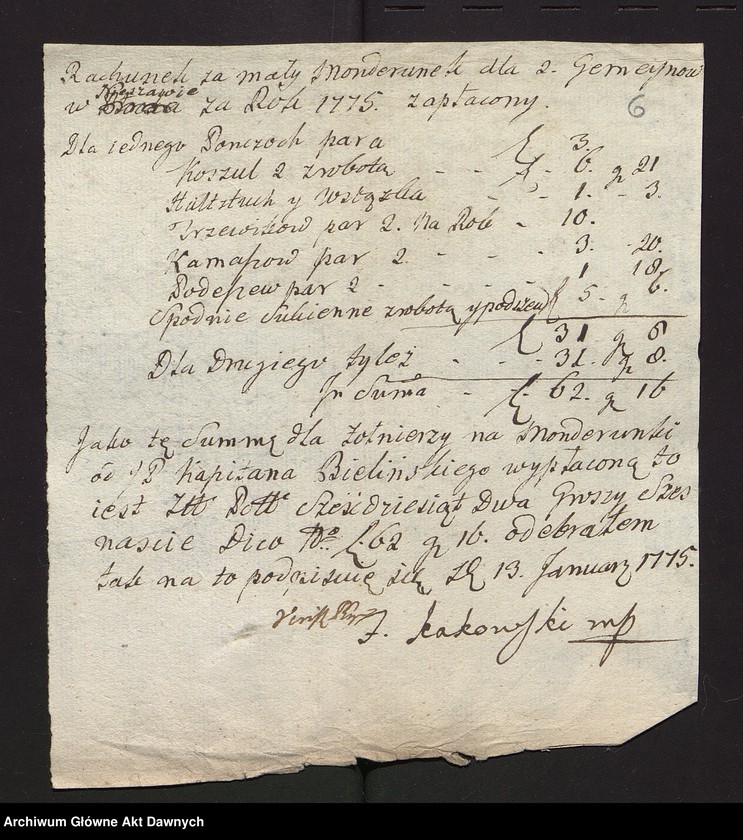 Rachunek za mały Monderunek dla 2. Gemeynow
w Warszawie za Rok 1775. zapłacony. 6
Dla iednego Ponczoch para ƒ 3.
Koszul 2 zrobotą - - ƒ - 6. g 21
Halsztuch y Wstążka - - 1. - 3.
Trzewikow par 2. Na Rok - 10.
Kamaszow par 2 - - - 3. 20.
Podeszew par 2 - - - - 1 18.
Spodnie Sukienne zrobotą ypodszew ƒ 5. g 6.
ƒ 31 g 8
Dla Drugiego tyleż - - - 31. g 8.
In Suma - - ƒ 62. g 16
Jako tę Summę dla żołnierzy na Monderunki
od JP Kapitana Bielińskiego wypłaconą to
iest Złł Poll Sześcdziesiąt Dwa Groszy Szes
nascie Dico ƒ 62 g 16. odebrałem
tak na to podpisuię się 13. January 1775.
J. Kakowski mp
Archiwum Główne Akt Dawnych